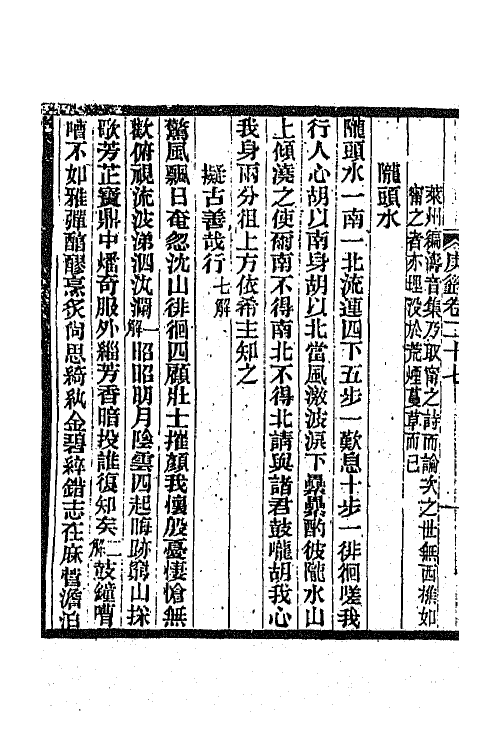 萊州編濤音集乃取甯之詩而論次之世無西樵如
甯之者亦埋沒於荒煙蔓草而已
隴頭水
隴頭水一南一北流連四下五步一歎息十步一徘徊嗟我
行人心胡以南身胡以北當風激波淚下纍纍酌彼隴水山
上傾澆之使爾南不得南北不得北請與諸君鼓嚨胡我心
我身兩分徂上方依希主知之
擬古善哉行七解
驚風飄日奄忽沈山徘徊四顧壯士摧顏我懷殷憂悽愴無
歡俯視流波涕泗汍瀾一解昭昭明月陰雲四起晦跡窮山採
歌芳芷寶鼎中燔奇服外緇芳香暗投誰復知矣二解鼓鐘嘈
嘈不如雅彈酣醪烹炙尚思綺紈金碧綷錯志在麻菅澹泊